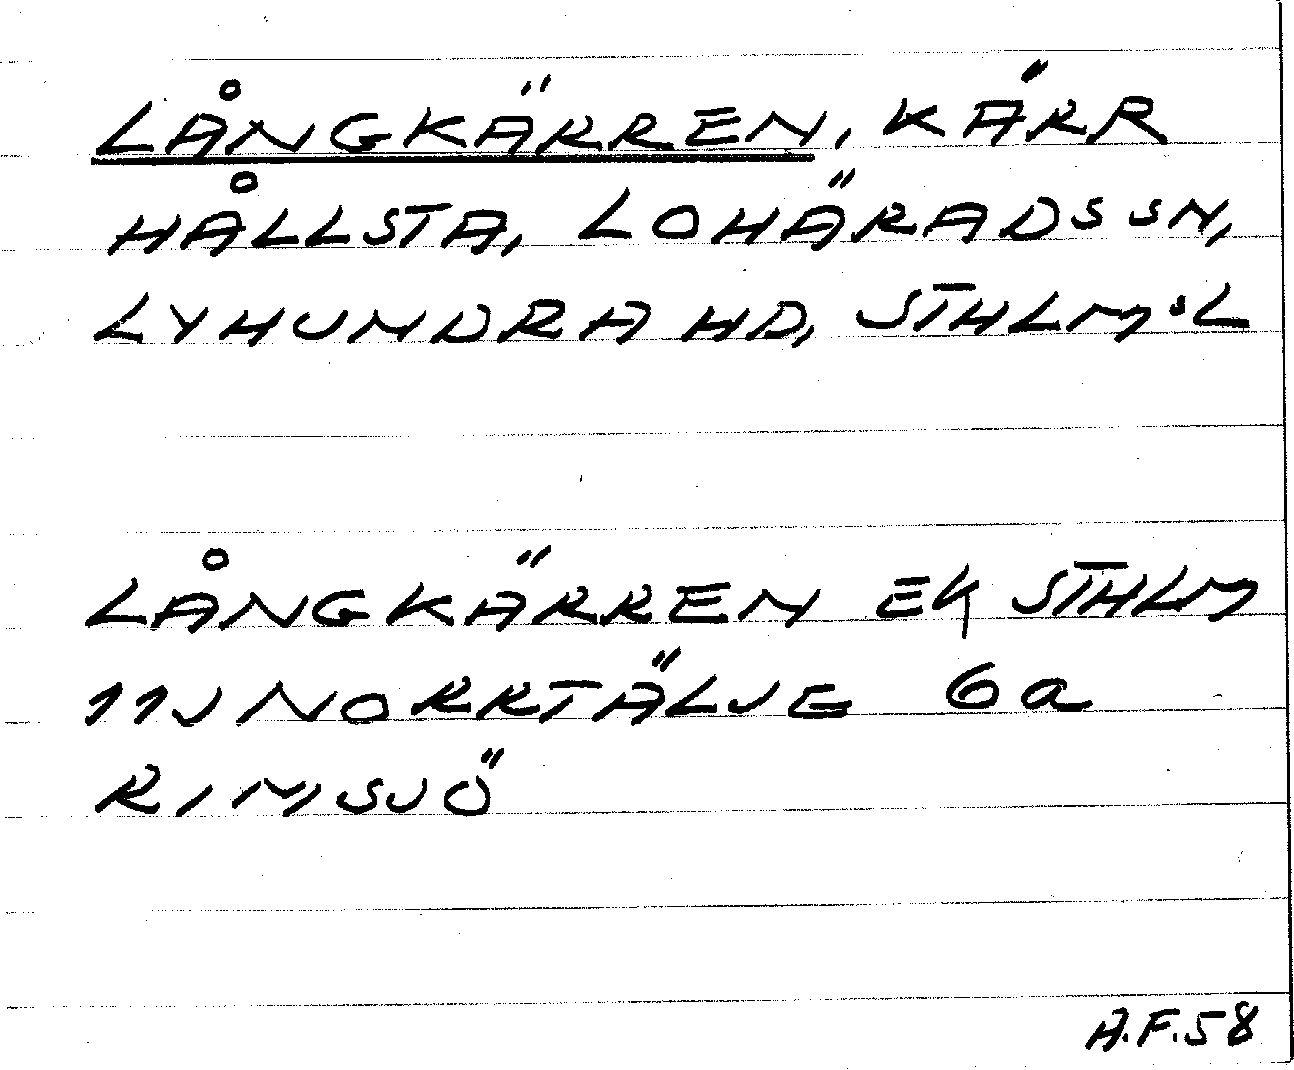 LÅNGKÄRREN, KÄRR
HÅLLSTA, LOHÄRADS SN,
LYHUNDRA HD, STHLM:S L
LÅNGKÄRREN EK STHLM
11J NORRTÄLJE 6a
RIMSJÖ
A.F.58